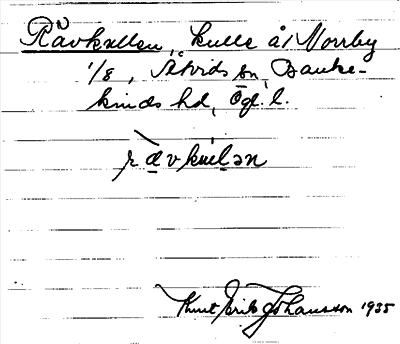 Rävkullen, kulle å/ Norrby
1/8, Åtvids sn, Banke-
kinds hd, Ögl. l.
Knut Erik Johansson 1935